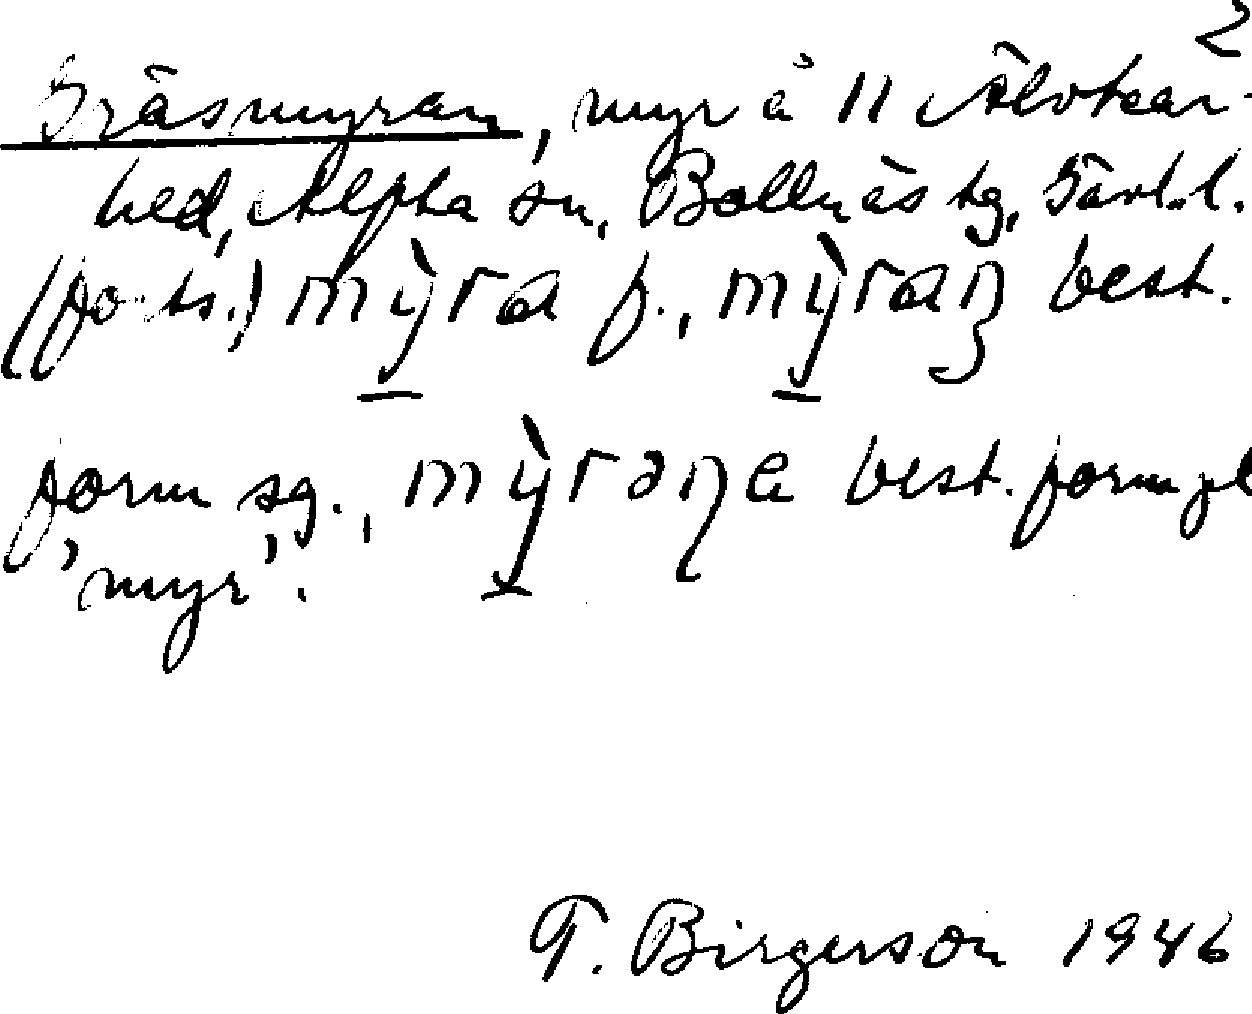 2
Gräsmyran, myr å 11 Älvkar-
hed, Alfta sn, Bollnäs tg, Gävl.l.
(forts.) mỳra f., mỳraŋ best.
form sg., mỳrəṇa best. form pl
'myr'.
T. Birgerson 1946